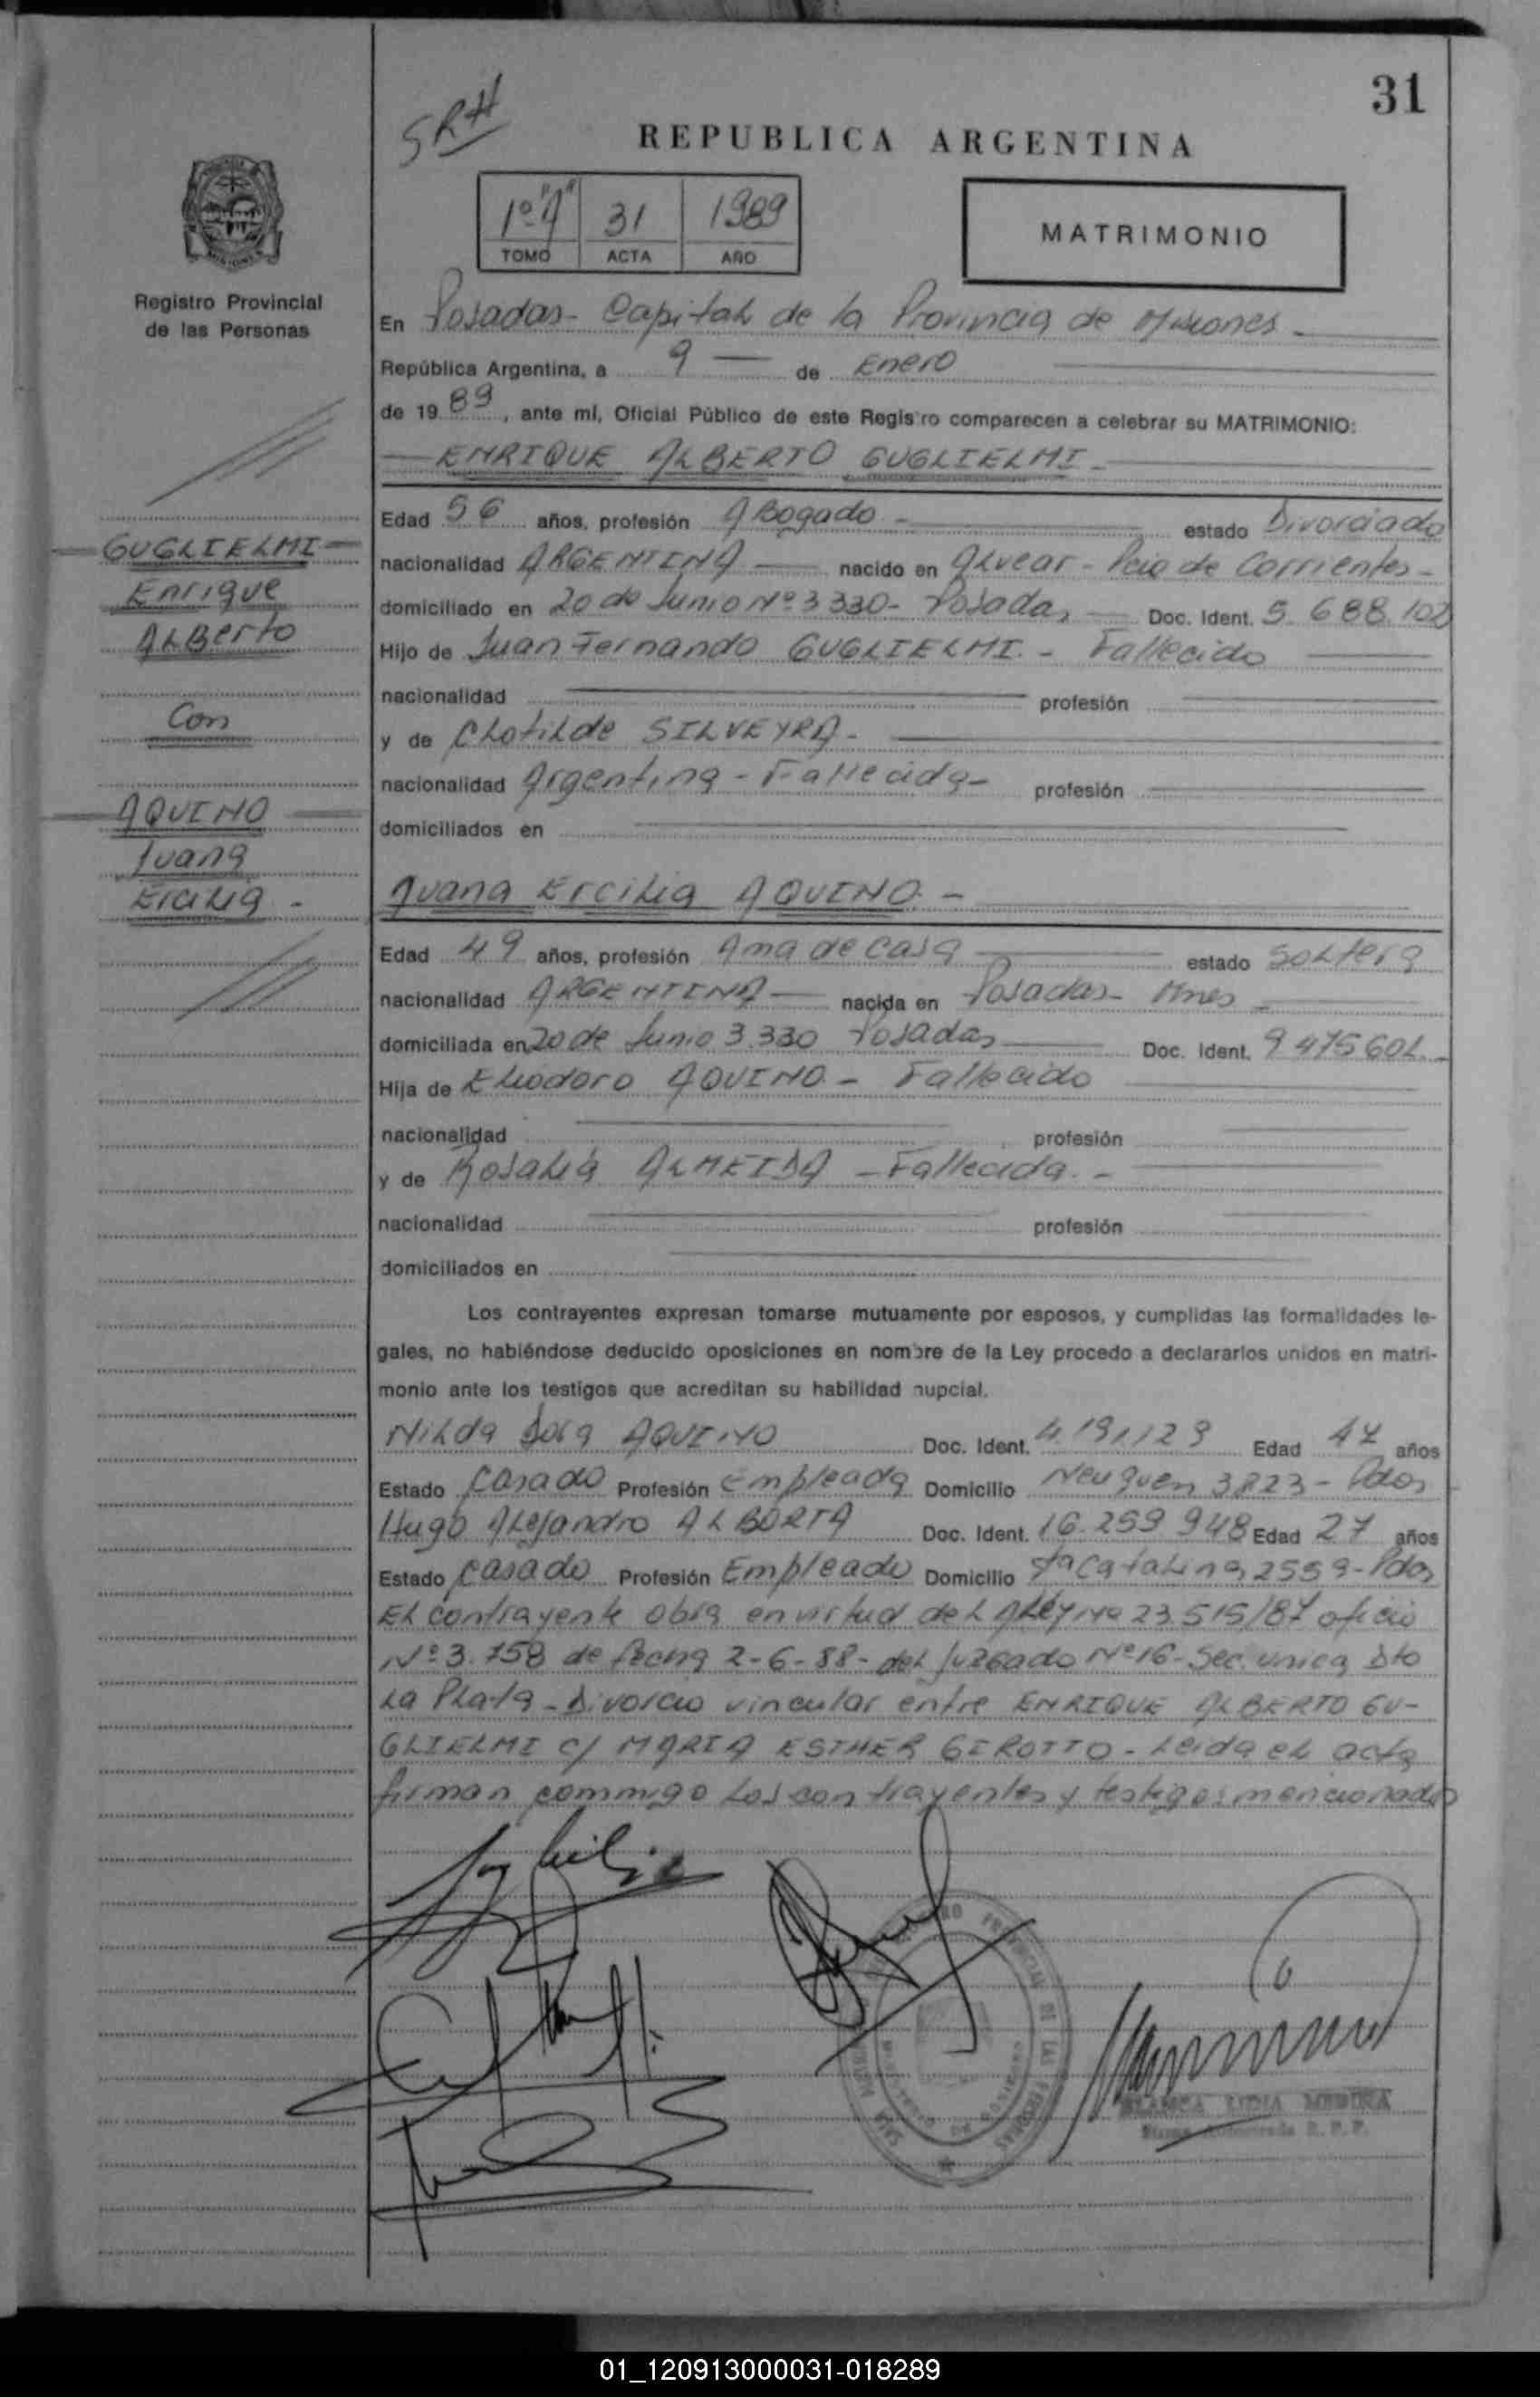 31
SRH
REPUBLICA ARGENTINA
1º "A" 31 1989
TOMO ACTA AÑO
MATRIMONIO
Registro Provincial
de las Personas
En Posadas - Capital de la Provincia de Misiones -
República Argentina, a 9 de Enero
de 1989, ante mí, Oficial Público de este Registro comparecen a celebrar su MATRIMONIO:
ENRIQUE ALBERTO GUGLIELMI -
Edad 56 años, profesión Abogado - estado Divorciado
GUGLIELMI
Enrique
Alberto
Con
AQUINO
Juana
Ercilia -
nacionalidad ARGENTINA nacido en Alvear - Pcia de Corrientes -
domiciliado en 20 de Junio Nº 3330 - Posadas Doc. Ident. 5.688.102
Hijo de Juan Fernando GUGLIELMI - Fallecido
nacionalidad profesión
y de Clotilde SILVEYRA -
nacionalidad Argentina - Fallecida - profesión
domiciliados en
Juana Ercilia AQUINO -
Edad 49 años, profesión Ama de Casa estado Soltera
nacionalidad ARGENTINA nacida en Posadas - Mnes
domiciliada en 20 de Junio 3.330 Posadas Doc. Ident. 9475601 -
Hija de Eliodoro AQUINO - Fallecido
nacionalidad profesión
y de Rosalia ALMEIDA - Fallecida -
nacionalidad profesión
domiciliados en
Los contrayentes expresan tomarse mutuamente por esposos, y cumplidas las formalidades le-
gales, no habiéndose deducido oposiciones en nombre de la Ley procedo a declararlos unidos en matri-
monio ante los testigos que acreditan su habilidad nupcial.
Nilda AQUINO Doc. Ident. 4.191.129 Edad 47 años
Estado Casado Profesión Empleada Domicilio Neuquen 3823 - Pdas
Hugo Alejandro ALBORTA Doc. Ident. 16.259.948 Edad 27 años
Estado Casado Profesión Empleado Domicilio Sta Catalina 2559 - Pdas
El contrayente obra en virtud de L A Ley Nº 23.515/87 oficio
Nº 3.758 de fecha 2-6-88 - del Juzgado Nº 16 - Sec. unica Dto
La Plata - Divorcio vincular entre ENRIQUE ALBERTO GU-
GLIELMI c/ MARIA ESTHER GIROTTO - Leida el acta
firman commigo los contrayentes y testigos mencionados
BLANCA LIDIA MEDINA
Firma Autorizada R. P. P.
01_120913000031-018289